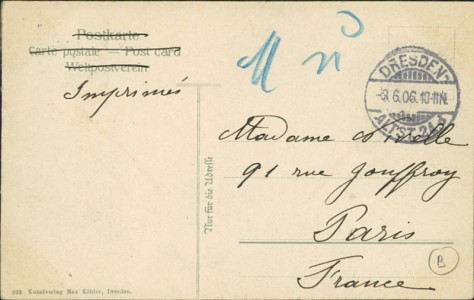 Postkarte
Carte postale — Post card
Weltpostverein
Imprimés
DRESDEN-
-3.6.06.10-11N.
ALTST.24
Nur für die Adresse
Madame
91 rue Jouffroy
Paris
France
B
Kunstverlag Max Köhler, Dresden.